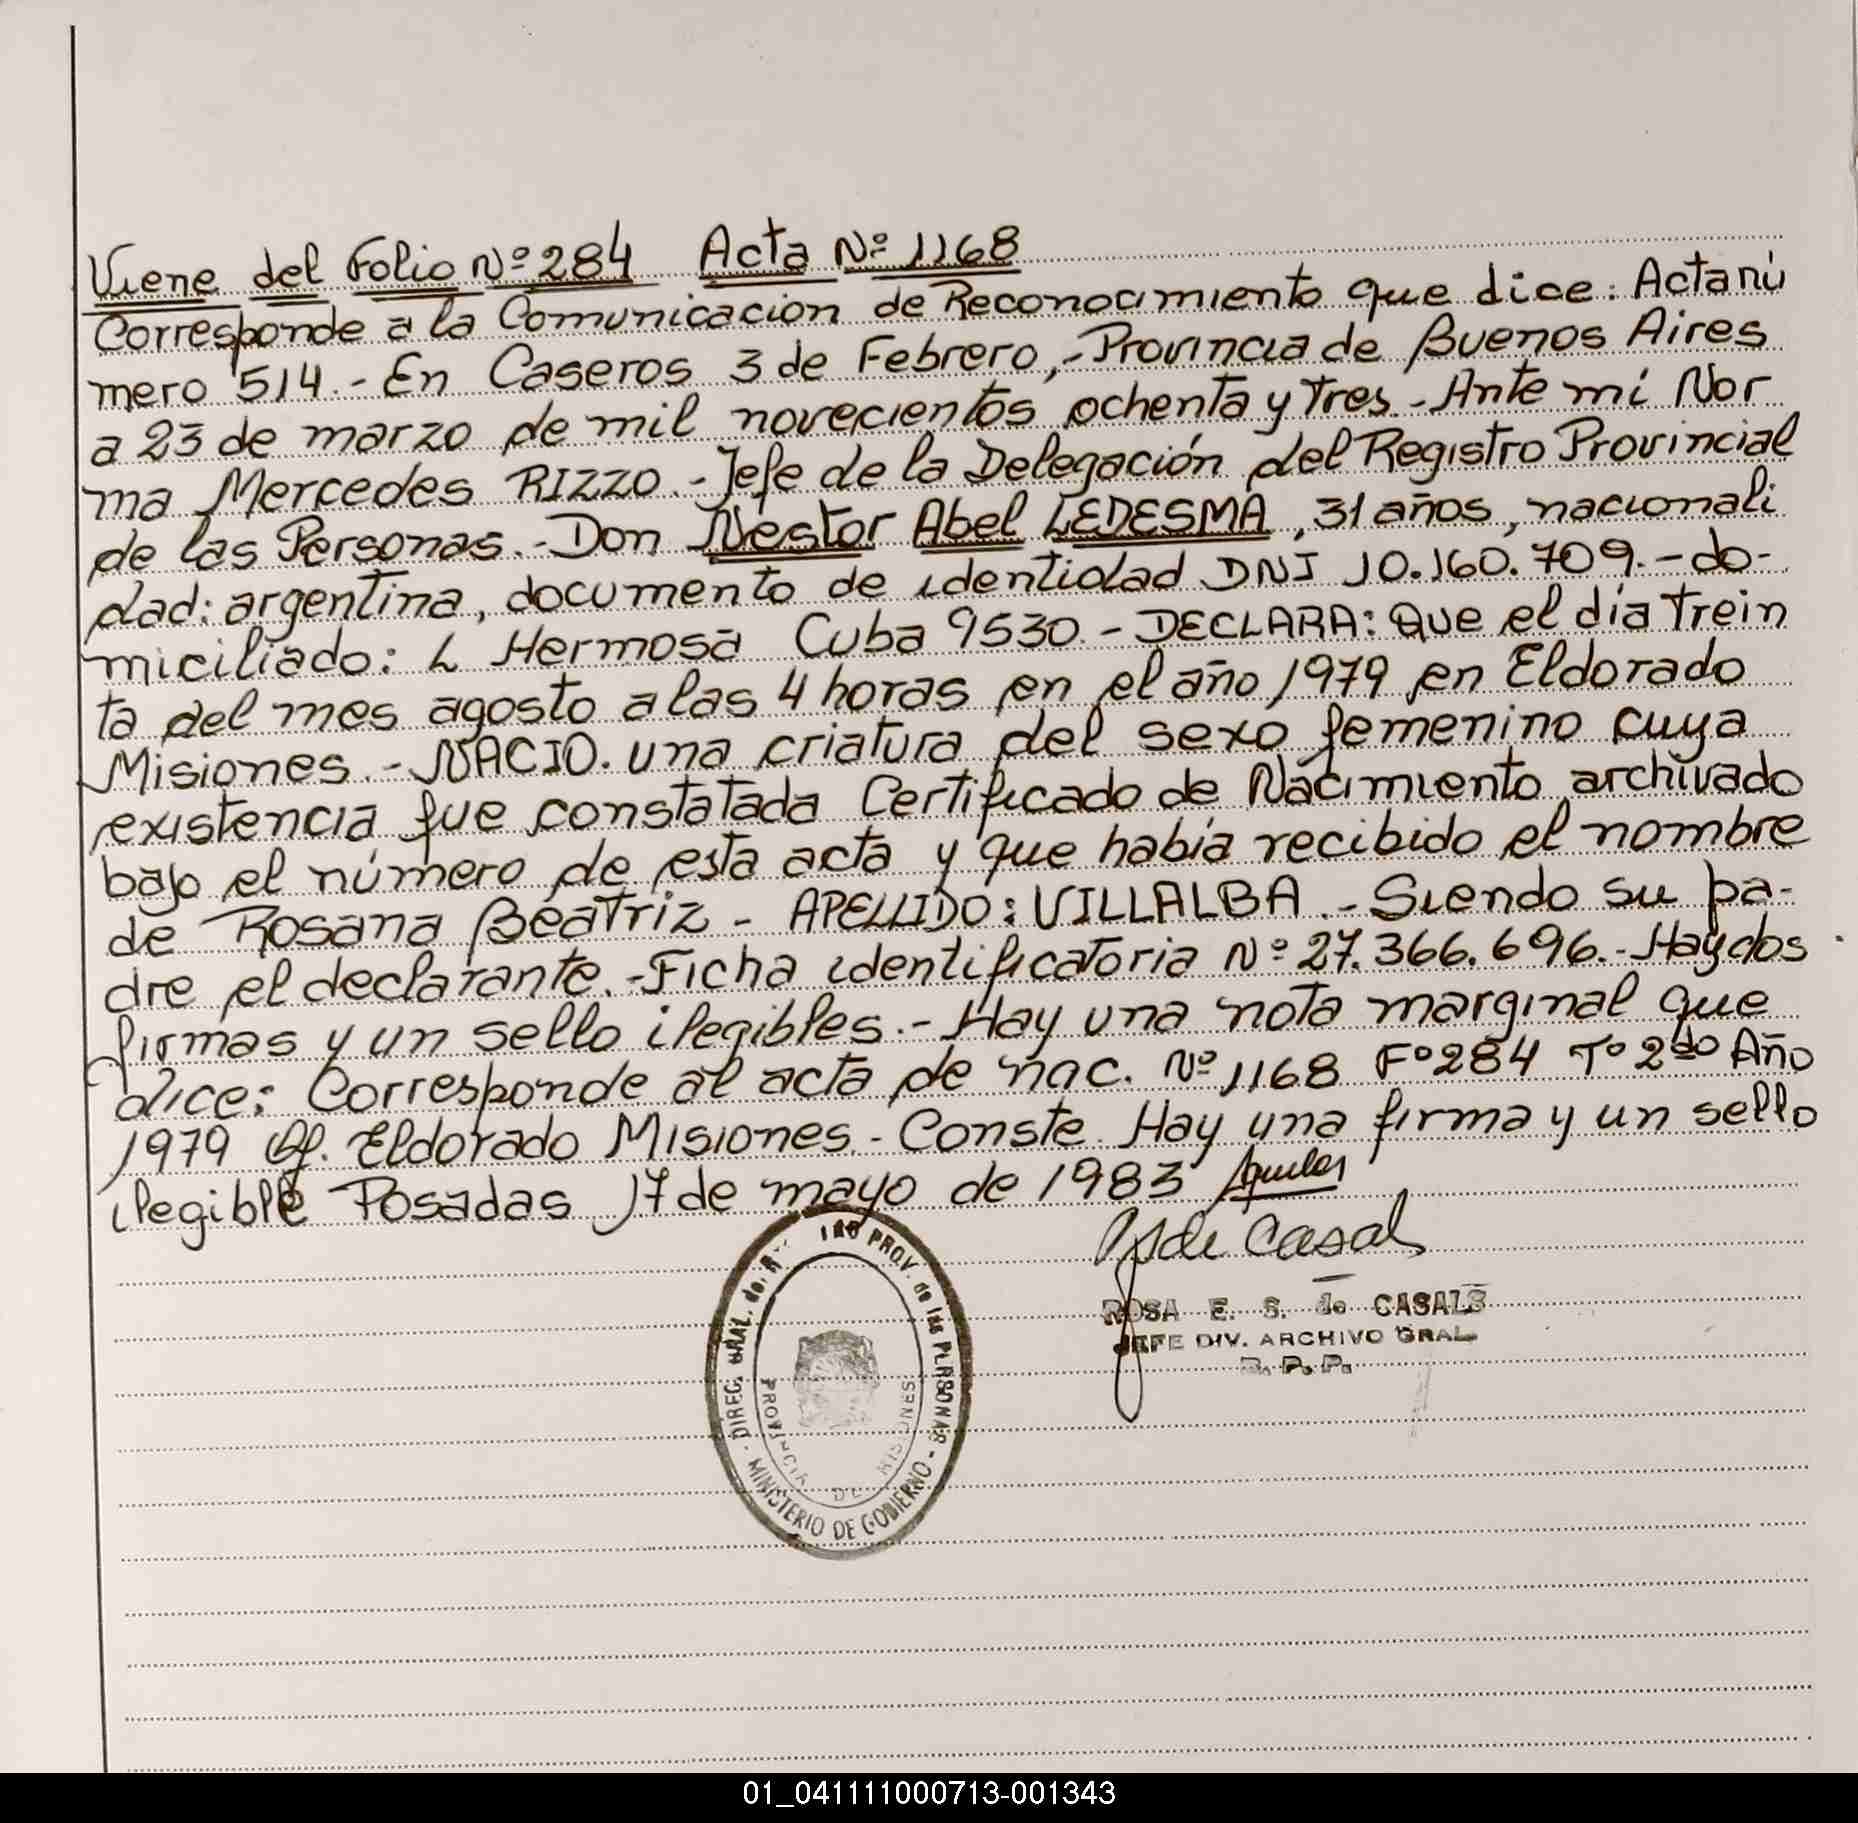 Viene del Folio Nº 284 Acta Nº 1168
Corresponde a la Comunicacion de Reconocimiento que dice: Acta nú
mero 514.- En Caseros 3 de Febrero,- Provincia de Buenos Aires
a 23 de marzo de mil novecientos ochenta y tres.- Ante mí Nor
ma Mercedes RIZZO.- Jefe de la Delegación del Registro Provincial
de las Personas.- Don Nestor Abel LEDESMA, 31 años, nacionali
dad: argentina, documento de identidad DNI 10.160.709.- do-
miciliado: L Hermosa Cuba 9530.- DECLARA: Que el día trein
ta del mes agosto a las 4 horas en el año 1979 en Eldorado
Misiones.- NACIO. una criatura del sexo femenino cuya
existencia fue constatada Certificado de Nacimiento archivado
bajo el número de esta acta y que había recibido el nombre
de Rosana Beatriz - APELLIDO: VILLALBA.- Siendo su pa-
dre el declarante.- Ficha identificatoria Nº 27.366.696.- Hay dos
firmas y un sello ilegibles.- Hay una nota marginal que
dice: Corresponde al acta de nac. Nº 1168 Fº 284 Tº 2do Año
1979 Of. Eldorado Misiones.- Conste. Hay una firma y un sello
ilegible Posadas 17 de mayo de 1983 Aguilar
de Casals
ROSA E. S. de CASALS
JEFE DIV. ARCHIVO GRAL
R. P. P.
DIREC. GRAL. del PROV. de las PERSONAS
PROVINCIA DE MISIONES
- MINISTERIO DE GOBIERNO -
01_041111000713-001343